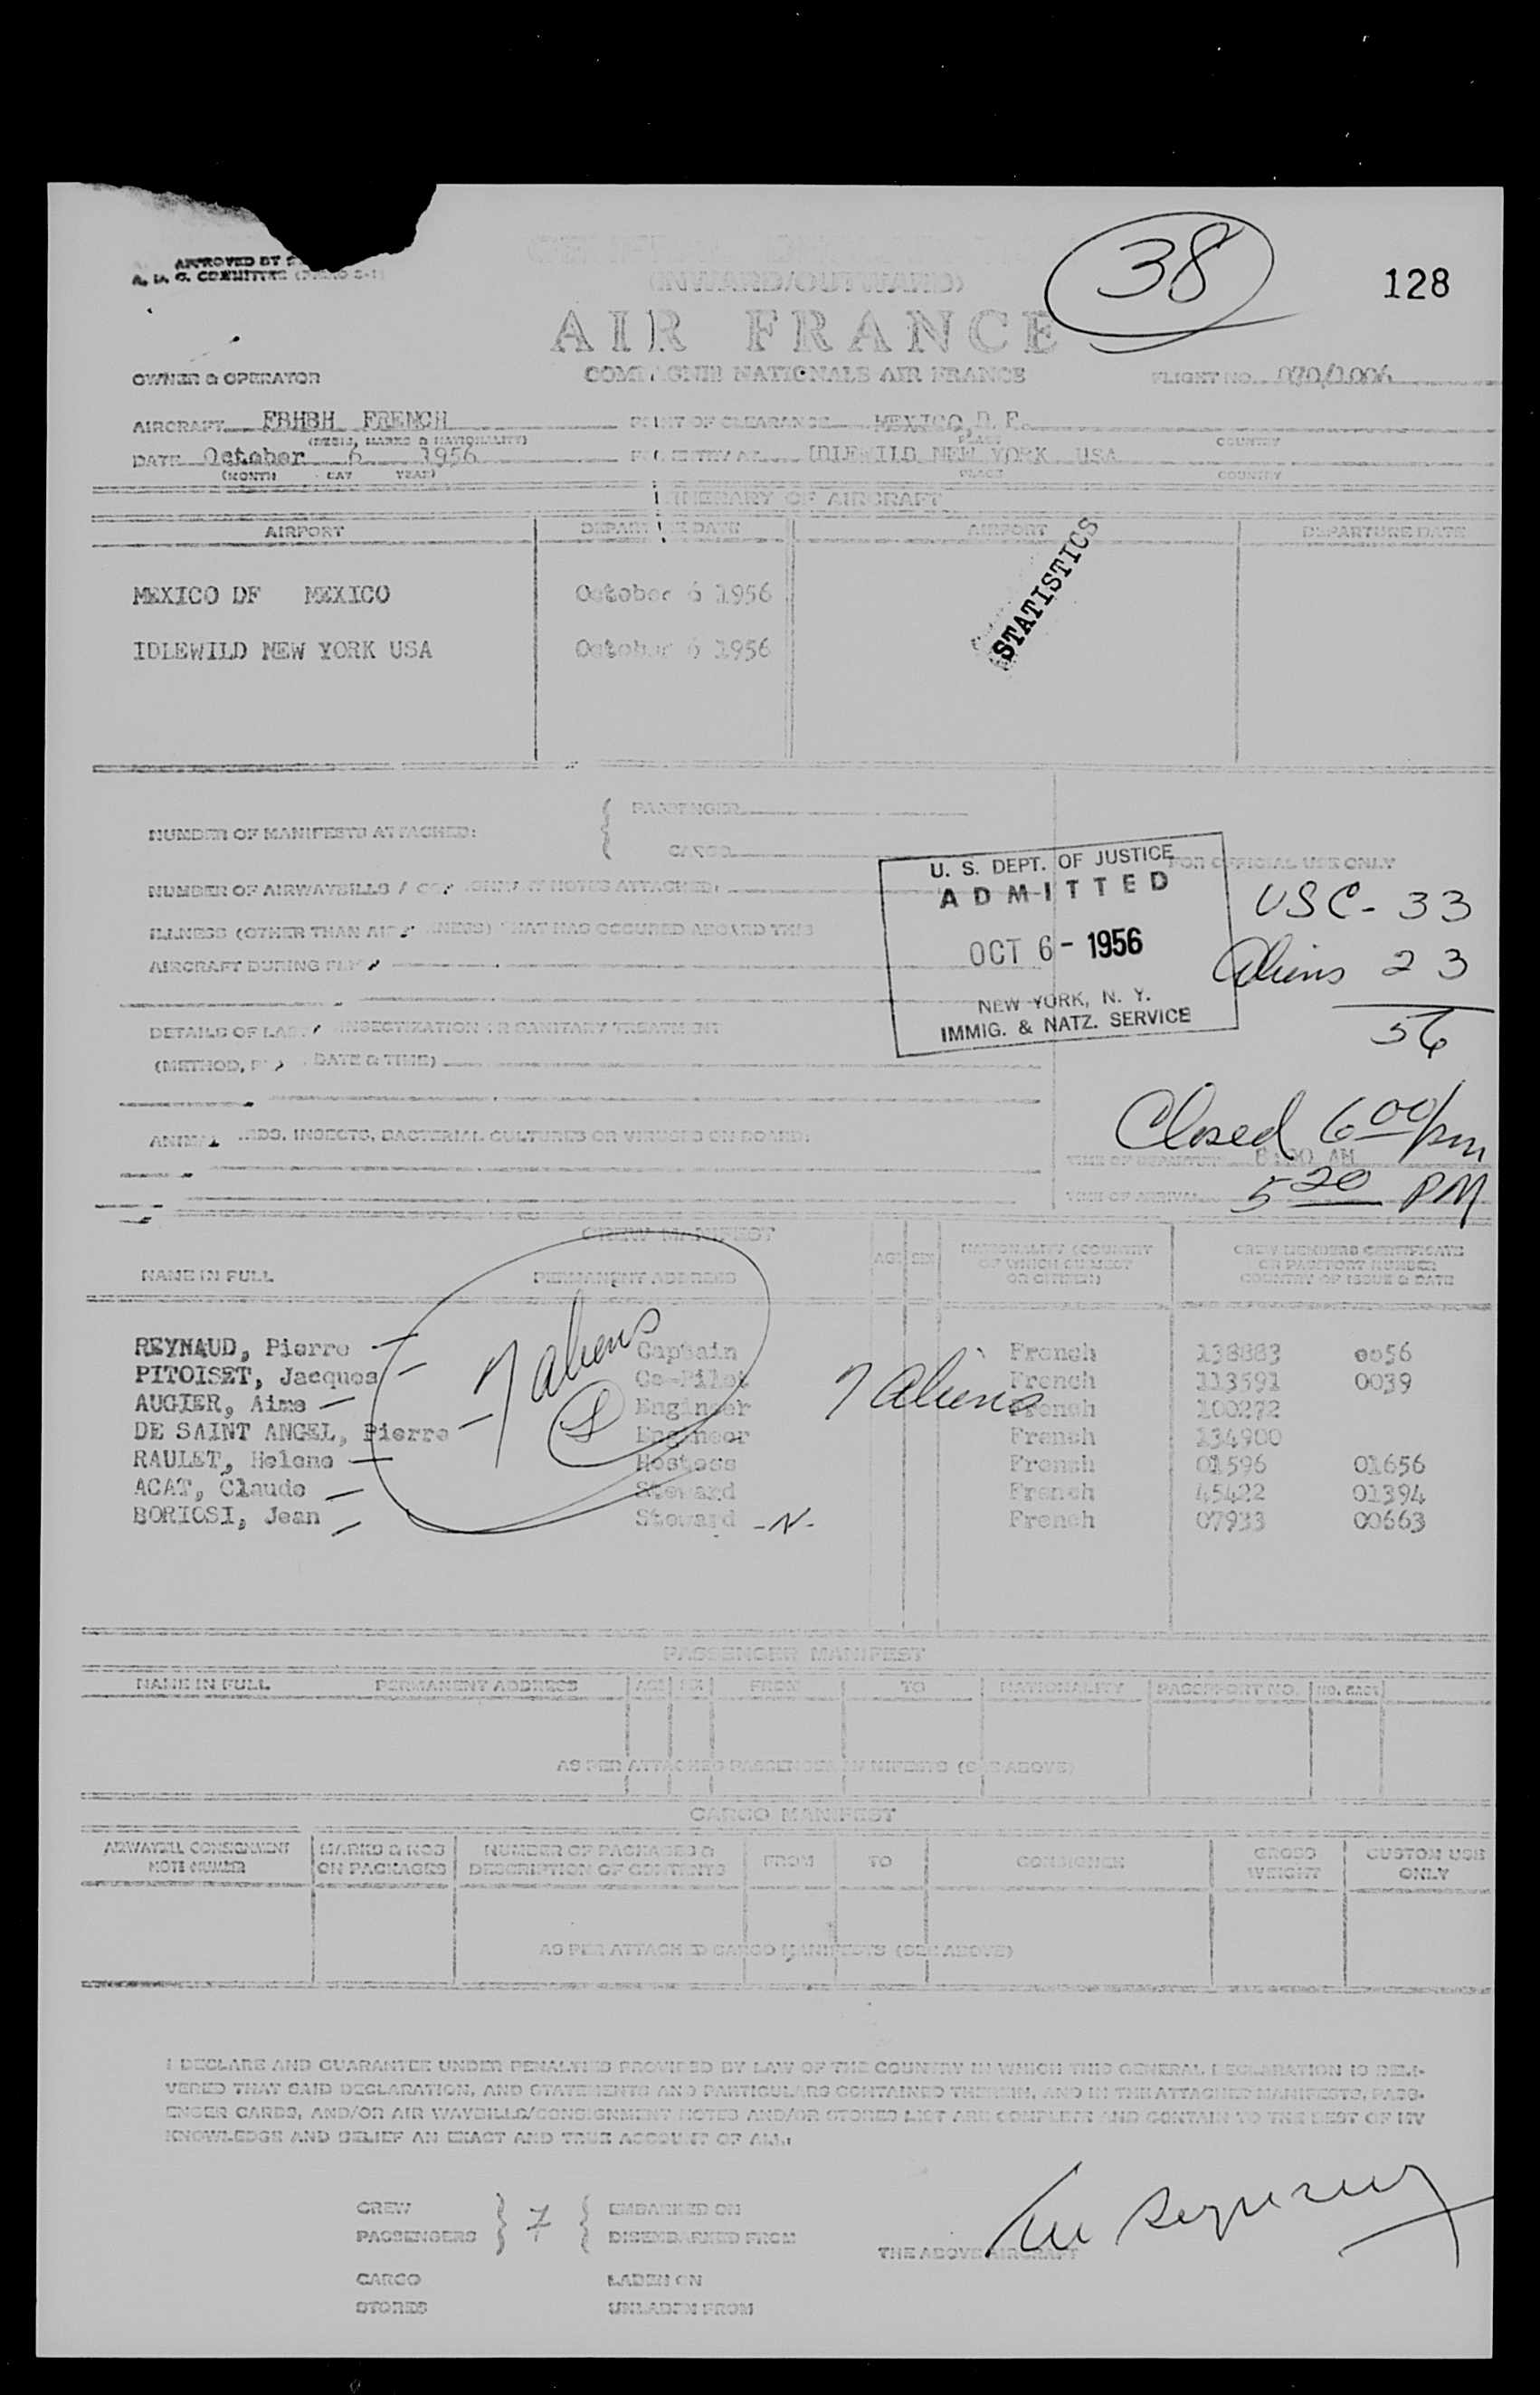 APPROVED BY
A. D. C. COMMITTEE
(INWARD/OUTWARD)
38
128
AIR FRANCE
OWNER & OPERATOR
COMPAGNIE NATIONALE AIR FRANCE
FLIGHT NO. 070/1006
AIRCRAFT FBHBH FRENCH
POINT OF CLEARANCE MEXICO, D.F.
(REGIS, MARKS & NATIONALITY)
PLACE COUNTRY
DATE October 6 1956
ENTRY AT IDLEWILD NEW YORK USA
(MONTH DAY YEAR)
PLACE COUNTRY
ITINERARY OF AIRCRAFT
AIRPORT DEPARTURE DATE AIRPORT DEPARTURE DATE
MEXICO DF MEXICO October 6 1956
IDLEWILD NEW YORK USA October 6 1956
STATISTICS
PASSENGER
NUMBER OF MANIFESTS ATTACHED:
CARGO
FOR OFFICIAL USE ONLY
NUMBER OF AIRWAYBILLS / CONSIGNMENT NOTES ATTACHED:
ILLNESS (OTHER THAN AIRSICKNESS) THAT HAS OCCURED ABOARD THIS
AIRCRAFT DURING FLIGHT
U. S. DEPT. OF JUSTICE
ADMITTED
OCT 6 - 1956
NEW YORK, N. Y.
IMMIG. & NATZ. SERVICE
USC - 33
Aliens 23
56
DETAILS OF LAST INSECTIZATION OR SANITARY TREATMENT
(METHOD, DATE & TIME)
Closed 6 00/pm
ANIMALS, BIRDS, INSECTS, BACTERIAL CULTURES OR VIRUSES ON BOARD:
TIME OF DEPARTURE AM
TIME OF ARRIVAL 5 20 PM
CREW MANIFEST
NAME IN FULL PERMANENT ADDRESS AGE SEX NATIONALITY (COUNTRY OF WHICH SUBJECT OR CITIZEN) CREW MEMBERS CERTIFICATE OR PASSPORT NUMBER COUNTRY OF ISSUE & DATE
7 aliens
7 Aliens
REYNAUD, Pierre Captain French 138883 0056
PITOISET, Jacques Co-Pilot French 113591 0039
AUGIER, Aime Engineer French 100272
DE SAINT ANGEL, Pierre Engineer French 134900
RAULET, Helene Hostess French 01596 01656
ACAT, Claude Steward French 45422 01394
BORIOSI, Jean Steward -N- French 07933 00663
PASSENGER MANIFEST
NAME IN FULL PERMANENT ADDRESS AGE SEX FROM TO NATIONALITY PASSPORT NO. NO. BAGS
AS PER ATTACHED PASSENGER MANIFESTS (SEE ABOVE)
CARGO MANIFEST
AIRWAYBILL CONSIGNMENT NOTE NUMBER MARKS & NOS ON PACKAGES NUMBER OF PACKAGES & DESCRIPTION OF CONTENTS FROM TO CONSIGNEE GROSS WEIGHT CUSTOM USE ONLY
AS PER ATTACHED CARGO MANIFESTS (SEE ABOVE)
I DECLARE AND GUARANTEE UNDER PENALTIES PROVIDED BY LAW OF THE COUNTRY IN WHICH THIS GENERAL DECLARATION IS DELI-
VERED THAT SAID DECLARATION, AND STATEMENTS AND PARTICULARS CONTAINED THEREIN, AND IN THE ATTACHED MANIFESTS, PASS-
ENGER CARDS, AND/OR AIR WAYBILLS/CONSIGNMENT NOTES AND/OR STORES LIST ARE COMPLETE AND CONTAIN TO THE BEST OF MY
KNOWLEDGE AND BELIEF AN EXACT AND TRUE ACCOUNT OF ALL:
CREW
PASSENGERS
7
EMBARKED ON
DISEMBARKED FROM
THE ABOVE AIRCRAFT
CARGO LADEN ON
STORES UNLADEN FROM